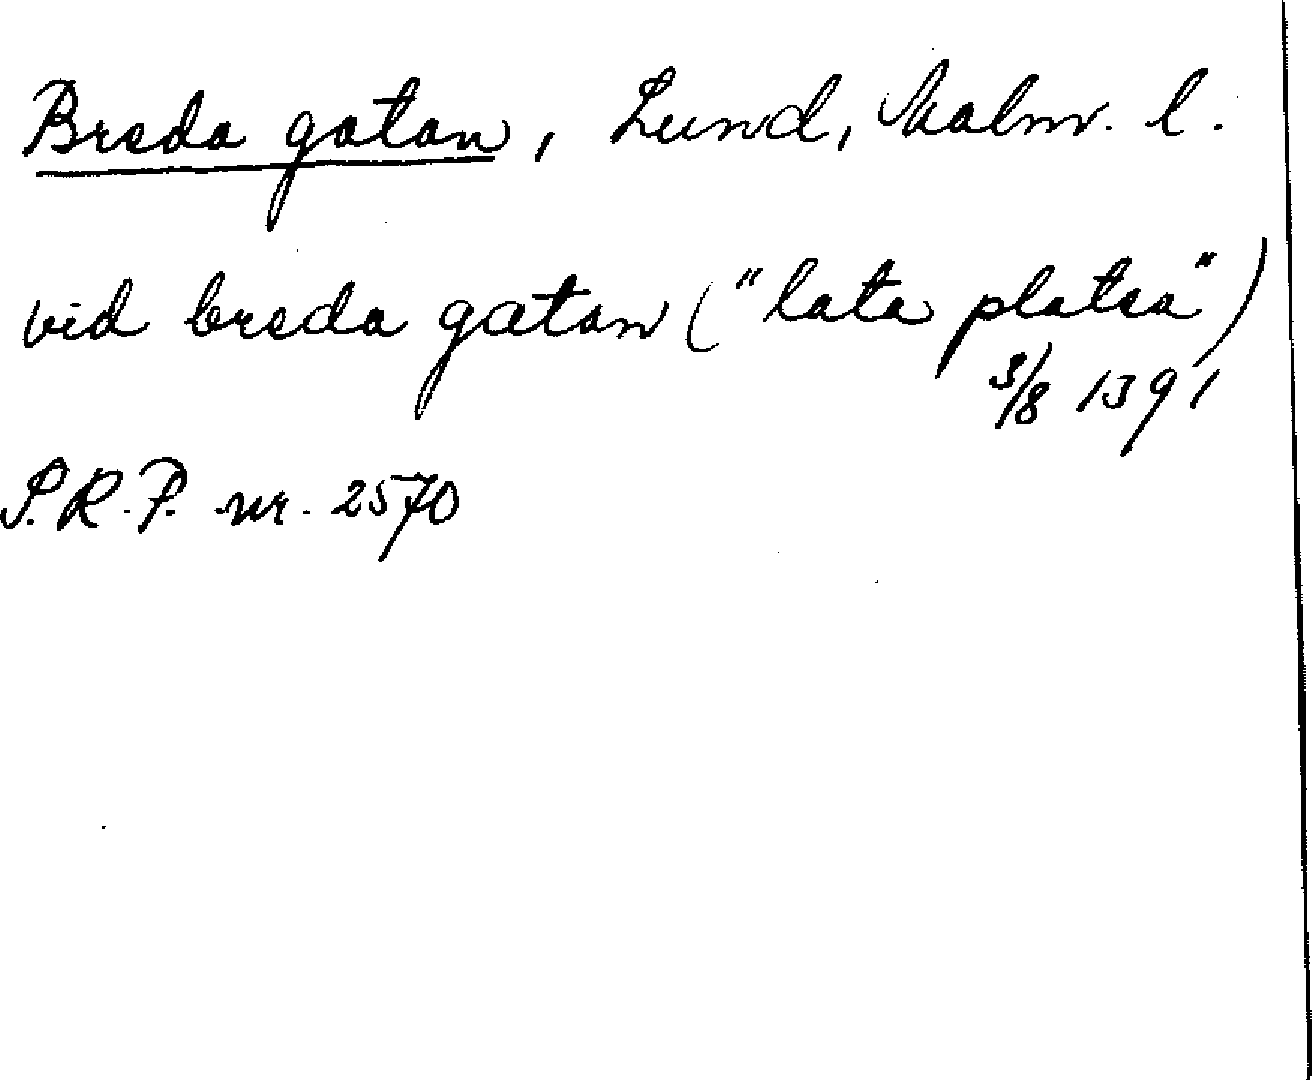 Breda gatan, Lund, Malm. l.
vid breda gatan ("lata platea")
3/8 1391
S.R.P. nr. 2570